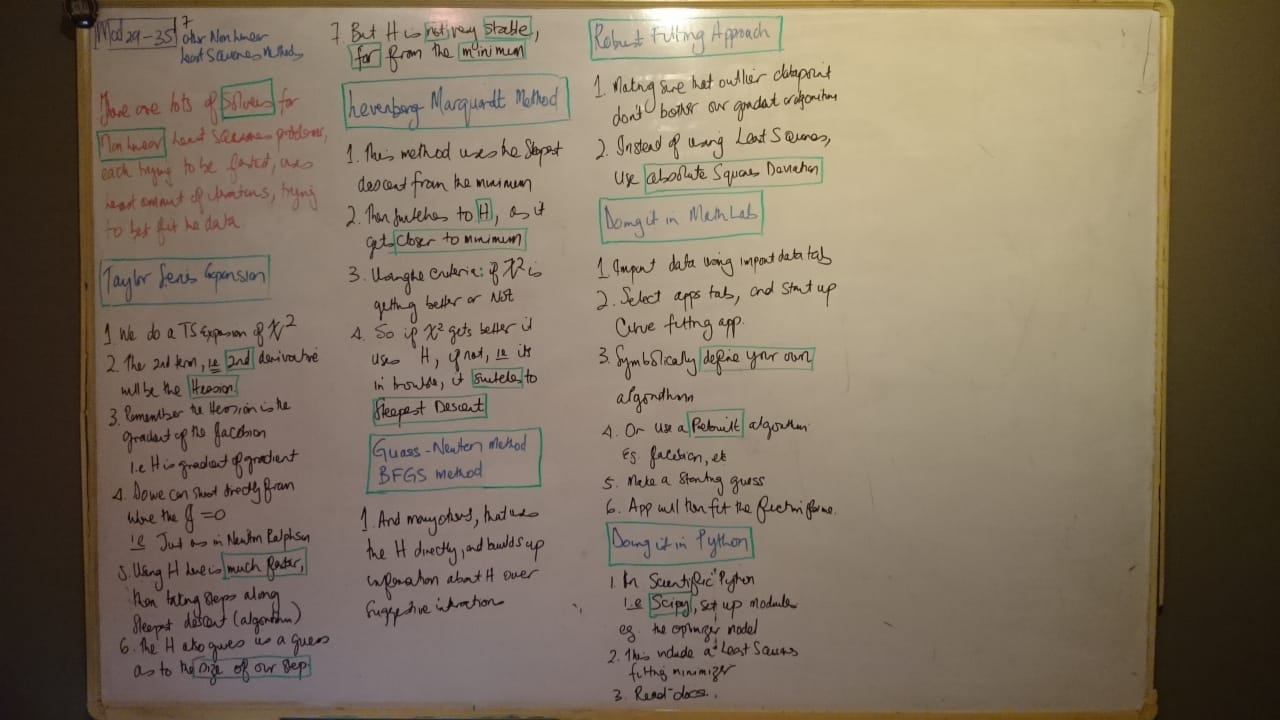 Mod 29-35 7
other Non linear
Least Squares Methods
There are lots of Solvers for
Non linear Least Squares problems,
each trying to be fastest, uses
least amount of iterations, trying
to best fit the data
Taylor Series Expansion
1 We do a TS Expansion of χ²
2. The 2nd term, i.e 2nd derivative
will be the Hession.
3. Remember the Hession is the
gradent of the Jacobian
i.e H is gradient of gradient
4. So we can shoot directly from
where the J = 0
ie Just as in Newton Ralphson
5. Using H here is much faster,
then taking steps along
Steepest descent (algorithm)
6. The H also gives us a guess
as to the size of our step
7. But H is not very stable,
far from the minimum
Levenberg Marquardt Method
1. This method uses the Steepest
descent from the minimum
2. Then switches to H, as it
gets closer to minimum
3. Using the criteria: if χ² is
getting better or Not
4. So if χ² gets better it
uses H, if not, ie its
in trouble, it switches to
Steepest Descent
Guass-Newton Method
BFGS method
1. And many others, that uses
the H directly, and builds up
information about H over
iterations
Robust Fitting Approach
1. Making sure that outlier datapoint
don't bother our gradent algorithm
2. Instead of using Least Squares,
Use absolute Square Deviation
Doing it in Math Lab
1. Import data using import data tab
2. Select apps tab, and start up
Curve fitting app.
3. Symbolically define your own
algorithm
4. Or use a Prebuilt algorithm
Eg. etc
5. Make a starting guess
6. App will then fit the
Doing it in Python
1. In Scientific Python
i.e Scipy, set up module
eg. the optimizer model
2. This include a Least Squares
fitting minimizer
3. Read-docs.